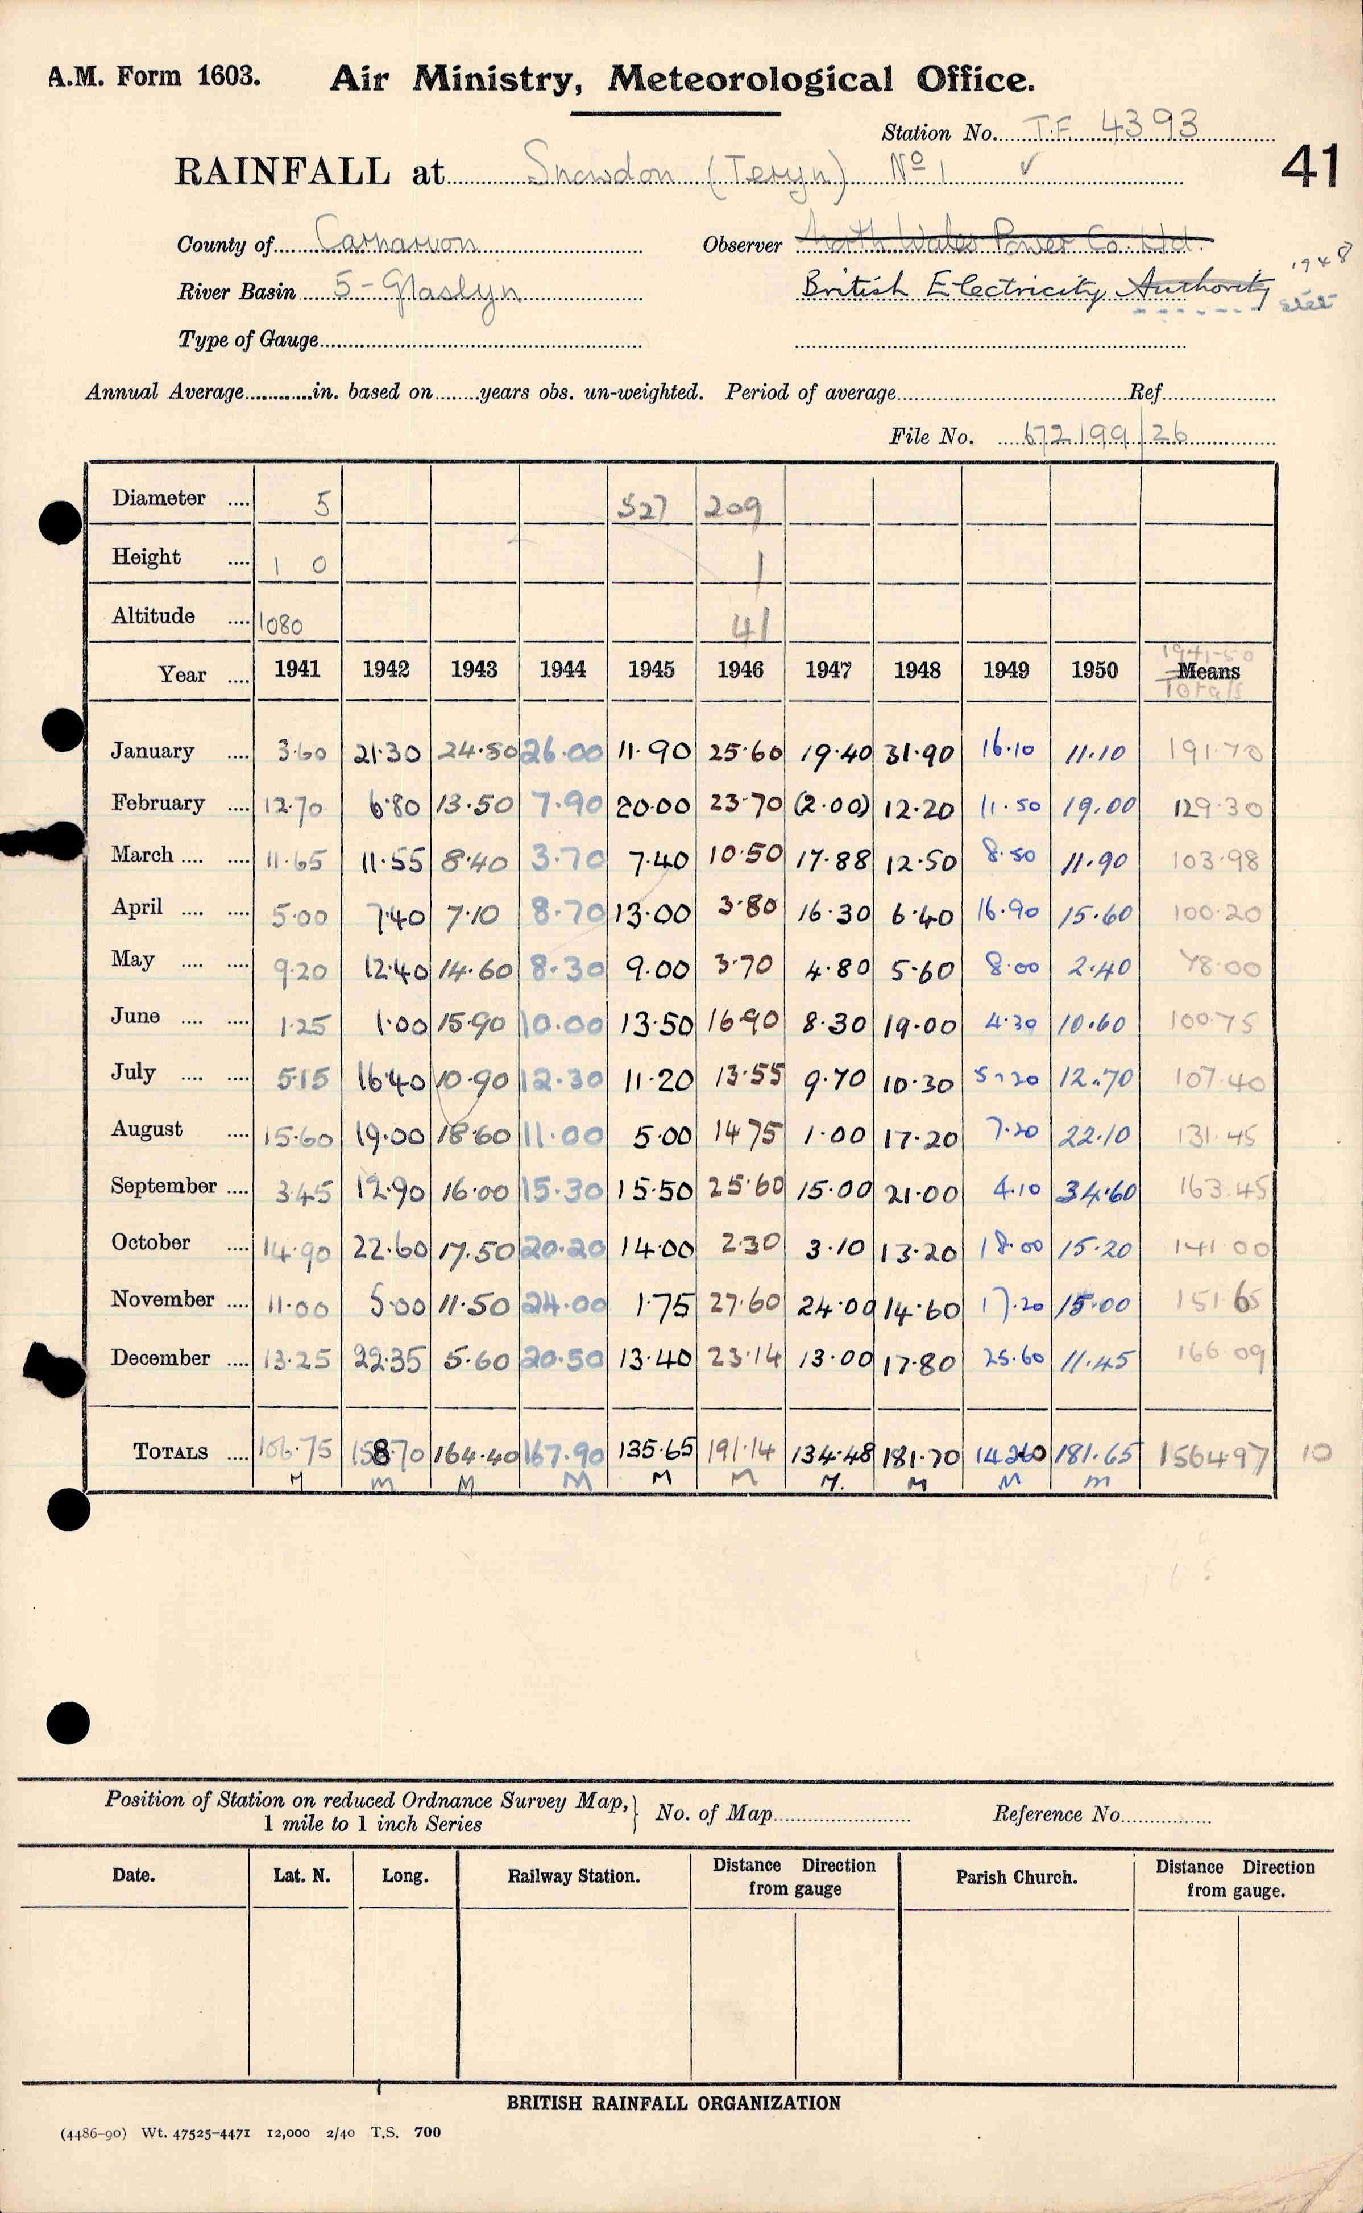 A.M. Form 1603. Air Ministry, Meteorological Office.
Station No. T.F. 4393
RAINFALL at Snowdon (Teryn) No 1 ✓ 41
County of Carnarvon Observer North Wales Power Co. Ltd.
River Basin 5-Glaslyn British Electricity Authority 1948 stet
Type of Gauge
Annual Average in. based on years obs. un-weighted. Period of average Ref
File No. 672199/26
Diameter 5 527 209
Height 1 0 1
Altitude 1080 41
Year 1941 1942 1943 1944 1945 1946 1947 1948 1949 1950 1941-50 Means Totals
January 3.60 21.30 24.80 26.00 11.90 25.60 19.40 31.90 16.10 11.10 191.70
February 12.70 6.80 13.50 7.90 20.00 23.70 (2.00) 12.20 11.50 19.00 129.30
March 11.65 11.55 8.40 3.70 7.40 10.50 17.88 12.50 8.50 11.90 103.98
April 5.00 7.40 7.10 8.70 13.00 3.80 16.30 6.40 16.90 15.60 100.20
May 9.20 12.40 14.60 8.30 9.00 3.70 4.80 5.60 8.00 2.40 78.00
June 1.25 1.00 15.90 10.00 13.50 16.90 8.30 19.00 4.30 10.60 100.75
July 5.15 16.40 10.90 12.30 11.20 13.55 9.70 10.30 5.20 12.70 107.40
August 15.60 19.00 18.60 11.00 5.00 14.75 1.00 17.20 7.20 22.10 131.45
September 3.45 12.90 16.00 15.30 15.50 25.60 15.00 21.00 4.10 34.60 163.45
October 14.90 22.60 17.50 20.20 14.00 2.30 3.10 13.20 18.00 15.20 141.00
November 11.00 5.00 11.50 24.00 1.75 27.60 24.00 14.60 17.20 15.00 151.65
December 13.25 22.35 5.60 20.50 13.40 23.14 13.00 17.80 25.60 11.45 166.09
TOTALS 106.75 158.70 164.40 167.90 135.65 191.14 134.48 181.70 142.60 181.65 1564.97 10
M M M M M M M. M M M
Position of Station on reduced Ordnance Survey Map, 1 mile to 1 inch Series } No. of Map Reference No.
Date. Lat. N. Long. Railway Station. Distance Direction from gauge Parish Church. Distance Direction from gauge.
BRITISH RAINFALL ORGANIZATION
(4486-90) Wt. 47525-4471 12,000 2/40 T.S. 700